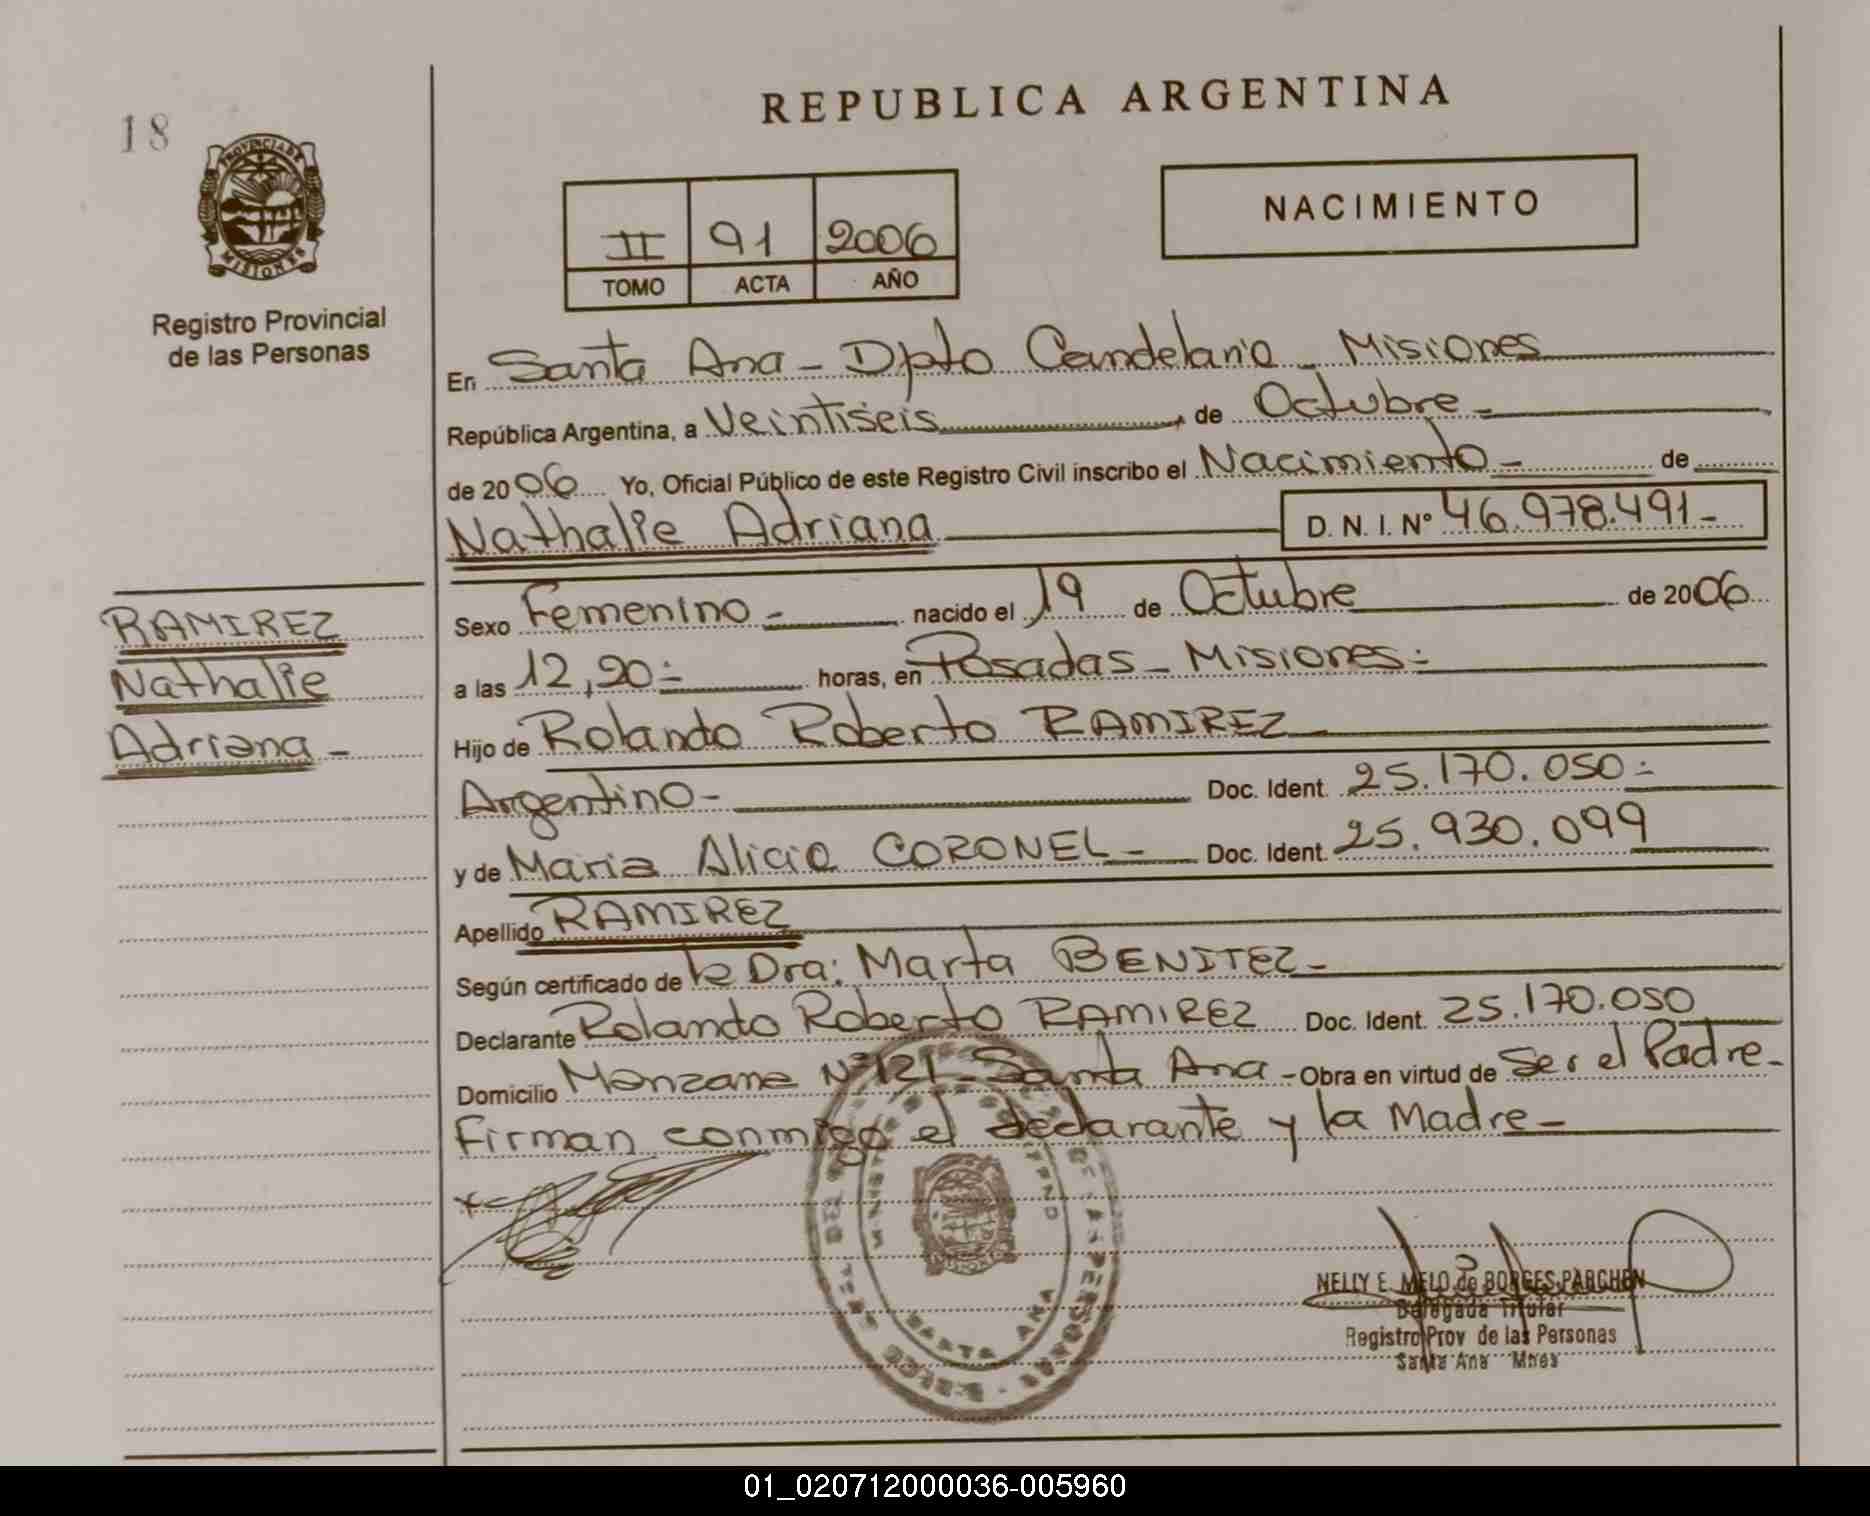 18
REPUBLICA ARGENTINA
PROVINCIA DE
MISIONES
Registro Provincial
de las Personas
II 91 2006
TOMO ACTA AÑO
NACIMIENTO
En Santa Ana - Dpto Candelaria - Misiones
República Argentina, a Veintiseis de Octubre -
de 2006 Yo, Oficial Público de este Registro Civil inscribo el Nacimiento - de
Nathalie Adriana D. N. I. Nº 46.978.491 -
RAMIREZ
Nathalie
Adriana -
Sexo Femenino - nacido el 19 de Octubre de 2006
a las 12,20 = horas, en Posadas - Misiones =
Hijo de Rolando Roberto RAMIREZ
Argentino - Doc. Ident. 25.170.050 =
y de Maria Alicia CORONEL - Doc. Ident. 25.930.099
Apellido RAMIREZ
Según certificado de la Dra: Marta BENITEZ -
Declarante Rolando Roberto RAMIREZ Doc. Ident. 25.170.050
Domicilio Manzana Nº 121 - Santa Ana - Obra en virtud de Ser el Padre -
Firman conmigo el declarante y la Madre -
SANTA ANA
MISIONES
NELLY E. MELO de BORGES PARCHEN
Delegada Titular
Registro Prov de las Personas
Santa Ana Mnes
01_020712000036-005960